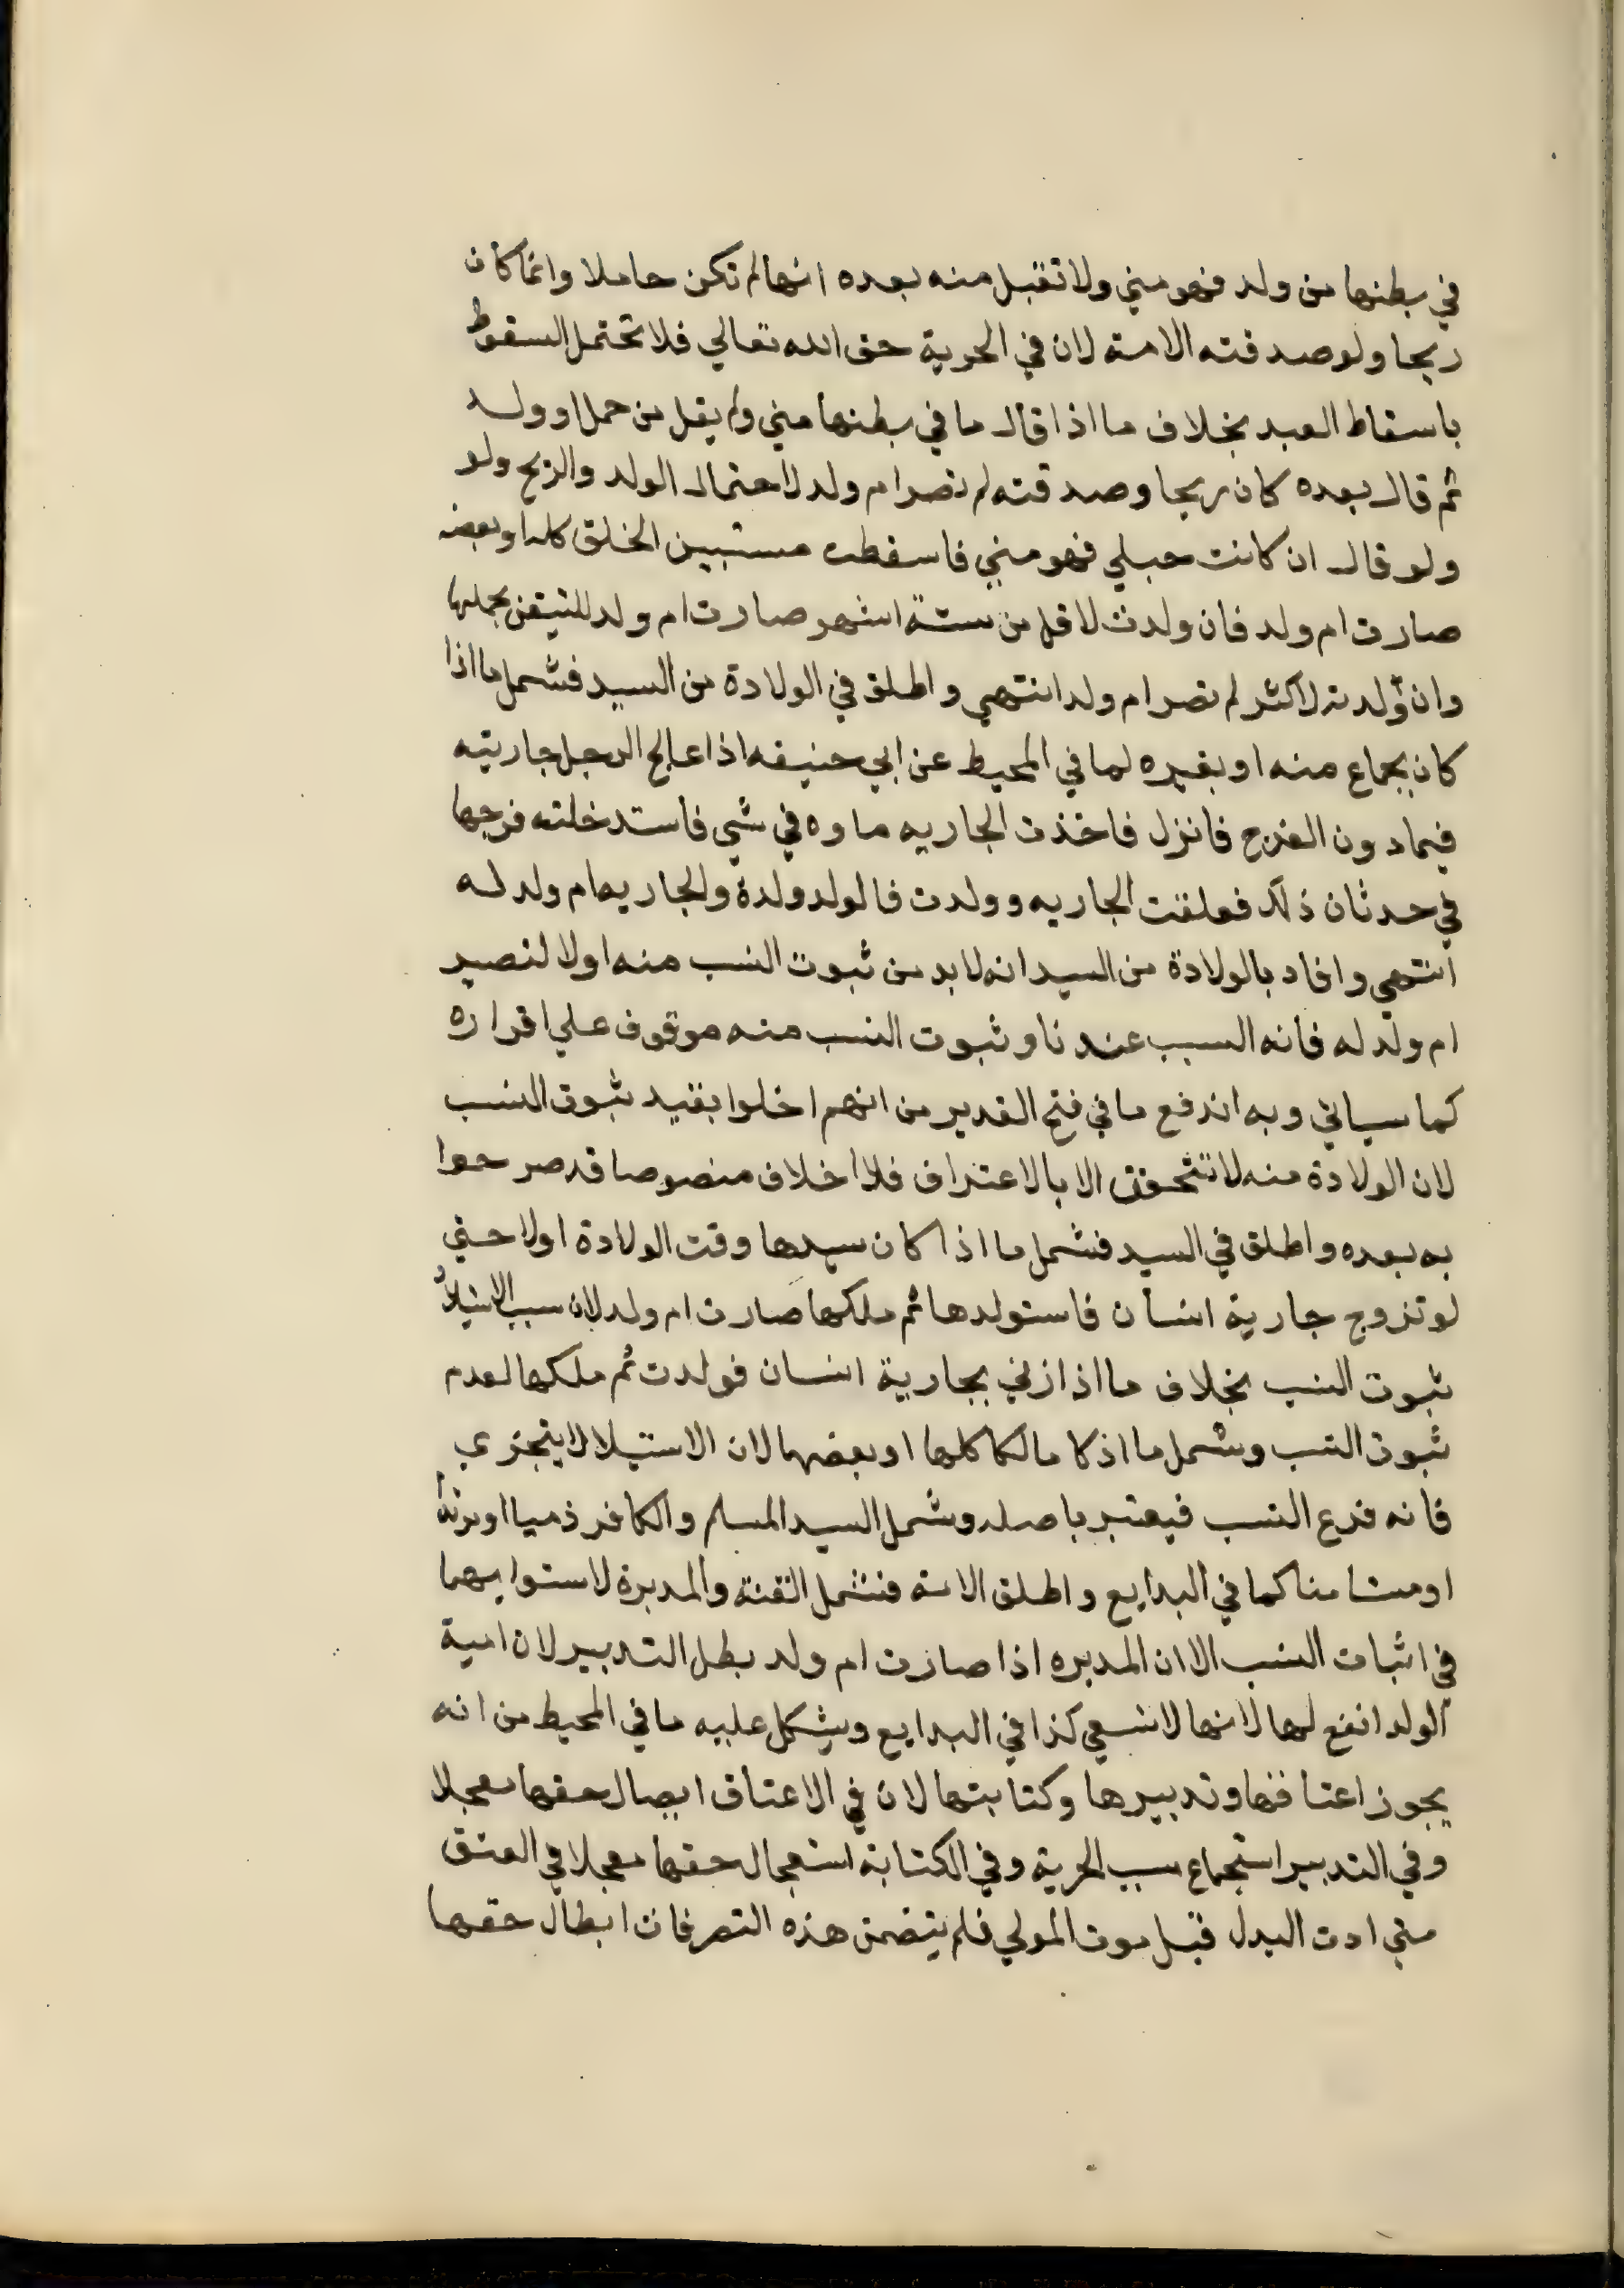 في بطنها من ولد فهو مني ولا تقبل منه بعده انها لم تكن حاملا وانما كان
ريحا ولو صدقته الامة لان في الحرية حق الله تعالي فلا تحتمل السقوط
باسقاط العبد بخلاف ما اذا قال ما في بطنها مني ولم يقل من حمل او ولد
ثم قال بعده كان ريحا وصدقته لم تصر ام ولد لاحتمال الولد والريح ولو
ولو قال ان كانت حبلي فهو مني فاسقطت مستبين الخلق كله او بعضه
صارت ام ولد فان ولدت لاقل من ستة اشهر صارت ام ولد للتيقن بحملها
وان ولدته لاكثر لم تصر ام ولد انتهي واطلق في الولادة من السيد فشمل ما اذا
كان بجماع منه او بغيره لما في المحيط عن ابي حنيفه اذا عالج الرجل جاريته
فيما دون الفرج فانزل فاخذت الجاريه ماوه في شي فاستدخلته فرجها
في حدثان ذلك فعلقت الجاريه وولدت فالولد ولدة والجاريه ام ولد له
انتهي وافاد بالولادة من السيد انه لابد من ثبوت النسب منه اولا لتصير
ام ولد له فانه السبب عندنا وثبوت النسب منه موقوف علي اقراره
كما سياتي وبه اندفع ما في فتح القدير من انهم اخلوا بقيد ثبوت النسب
لان الولادة منه لا تتحقق الا بالاعتراف فلا اخلاف منصوصا قد صرحوا
به بعده واطلق في السيد فشمل ما اذا كان سيدها وقت الولادة اولا حتي
لو تزوج جارية انسان فاستولدها ثم ملكها صارت ام ولد لان سبب الاستيلاد
ثبوت النسب بخلاف ما اذا زني بجارية انسان فولدت ثم ملكها لعدم
ثبوت النسب وشمل ما اذ كا مالكا كلها او بعضها لان الاستيلاد لا يتجزي
فانه فرع النسب فيعتبر باصله وشمل السيد المسلم والكافر ذميا او مرتدا
او مستامنا كما في البدايع واطلق الامه فشمل القنة والمدبرة لاستوايهما
في اثبات النسب الا ان المدبره اذا صارت ام ولد بطل التدبير لان امية
الولد انفع لها لانها لا تسعي كذا في البدايع ويشكل عليه ما في المحيط من انه
يجوز اعتاقها وتدبيرها وكتابتها لان في الاعتاق ايصال حقها معجلا
وفي التدبير استجماع سبب الحرية وفي الكتابة استعجال حقها معجلا في العتق
متي ادت البدل قبل موت المولي فلم يتضمن هذه التصرفات ابطال حقها